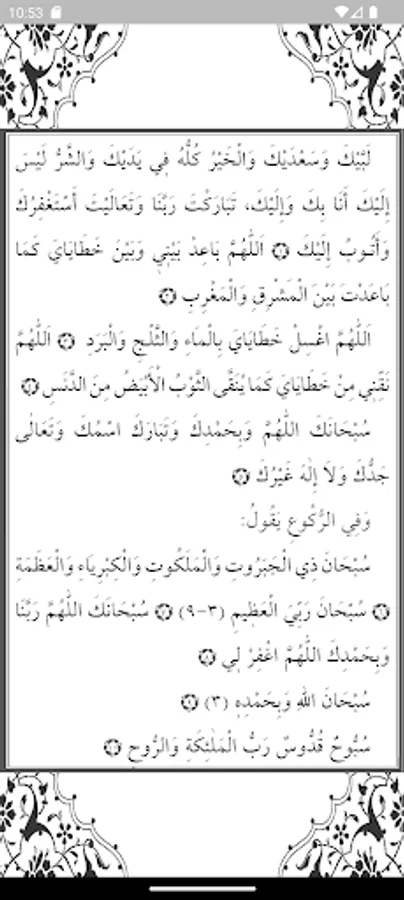 10:53
لَبَّيْكَ وَسَعْدَيْكَ وَالْخَيْرُ كُلُّهُ فِي يَدَيْكَ وَالشَّرُّ لَيْسَ
إِلَيْكَ أَنَا بِكَ وَإِلَيْكَ، تَبَارَكْتَ رَبَّنَا وَتَعَالَيْتَ أَسْتَغْفِرُكَ
وَأَتُوبُ إِلَيْكَ اَللّٰهُمَّ بَاعِدْ بَيْنِي وَبَيْنَ خَطَايَايَ كَمَا
بَاعَدْتَ بَيْنَ الْمَشْرِقِ وَالْمَغْرِبِ
اَللّٰهُمَّ اغْسِلْ خَطَايَايَ بِالْمَاءِ وَالثَّلْجِ وَالْبَرَدِ اَللّٰهُمَّ
نَقِّنِي مِنْ خَطَايَايَ كَمَا يُنَقَّى الثَّوْبُ الْأَبْيَضُ مِنَ الدَّنَسِ
سُبْحَانَكَ اللّٰهُمَّ وَبِحَمْدِكَ وَتَبَارَكَ اسْمُكَ وَتَعَالٰى
جَدُّكَ وَلَا إِلٰهَ غَيْرُكَ
وَفِي الرُّكُوعِ يَقُولُ:
سُبْحَانَ ذِي الْجَبَرُوتِ وَالْمَلَكُوتِ وَالْكِبْرِيَاءِ وَالْعَظَمَةِ
سُبْحَانَ رَبِّيَ الْعَظِيمِ (٣-٩) سُبْحَانَكَ اللّٰهُمَّ رَبَّنَا
وَبِحَمْدِكَ اللّٰهُمَّ اغْفِرْ لِي
سُبْحَانَ اللهِ وَبِحَمْدِهِ (٣)
سُبُّوحٌ قُدُّوسٌ رَبُّ الْمَلٰئِكَةِ وَالرُّوحِ